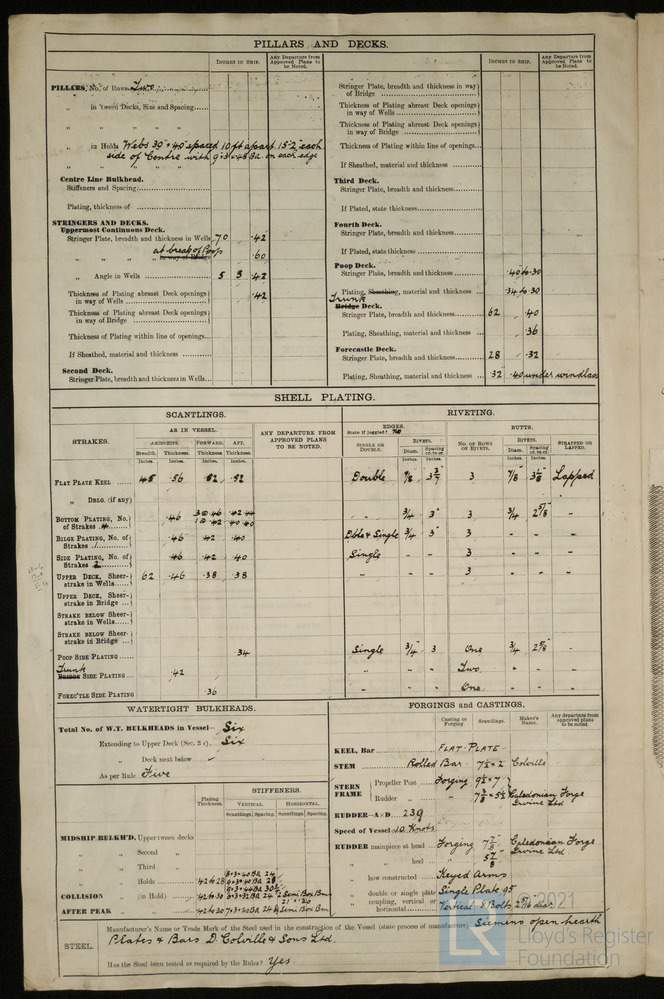 PILLARS AND DECKS.
INCHES IN SHIP. Any Departure from Approved Plans to be Noted. INCHES IN SHIP. Any Departure from Approved Plans to be Noted.
PILLARS, No. of Rows Two
„ in 'tween Decks, Size and Spacing
„ „ „ „
„ in Holds Webs 39" × 40 spaced 10 ft apart 15-2 each
side of Centre with 9 × 3 × 48 BA. on each edge
Centre Line Bulkhead.
Stiffeners and Spacing
Plating, thickness of
STRINGERS AND DECKS.
Uppermost Continuous Deck.
Stringer Plate, breadth and thickness in Wells 70 .42
„ „ „ „ at break of Poop in way of Bridge .60
„ Angle in Wells 5 3 .42
Thickness of Plating abreast Deck openings in way of Wells .42
Thickness of Plating abreast Deck openings in way of Bridge
Thickness of Plating within line of openings
If Sheathed, material and thickness
Second Deck.
Stringer Plate, breadth and thickness in Wells
Stringer Plate, breadth and thickness in way of Bridge
Thickness of Plating abreast Deck openings in way of Wells
Thickness of Plating abreast Deck openings in way of Bridge
Thickness of Plating within line of openings
If Sheathed, material and thickness
Third Deck.
Stringer Plate, breadth and thickness
If Plated, state thickness
Fourth Deck.
Stringer Plate, breadth and thickness
If Plated, state thickness
Poop Deck.
Stringer Plate, breadth and thickness .40 to .30
Plating, Sheathing, material and thickness .34 to .30
Trunk
Bridge Deck.
Stringer Plate, breadth and thickness 62 .40
Plating, Sheathing, material and thickness .36
Forecastle Deck.
Stringer Plate, breadth and thickness 28 .32
Plating, Sheathing, material and thickness .32 .40 under windlass
SHELL PLATING.
SCANTLINGS. RIVETING.
STRAKES. AS IN VESSEL. ANY DEPARTURE FROM APPROVED PLANS TO BE NOTED. EDGES. State if joggled? No BUTTS.
AMIDSHIPS. FORWARD. AFT. SINGLE OR DOUBLE. RIVETS. No. OF ROWS OF RIVETS. RIVETS. STRAPPED OR LAPPED.
Breadth. Thickness. Thickness. Thickness. Diam. Spacing cr. to cr. Diam. Spacing cr. to cr.
Inches. Inches. Inches. Inches. Inches. Inches. Inches. Inches.
FLAT PLATE KEEL 45 .56 .52 .52 Double 7/8 3 7/8 3 1/8 Lapped
„ DBLG. (if any)
BOTTOM PLATING, No. of Strakes 4 .46 3 @ .46 1 @ .42 .42 .44 .40 .40 - 3/4 3" 3 3/4 2 5/8 -
BILGE PLATING, No. of Strakes 1 .46 .42 .40 Dble & Single 3/4 3" 3 - - -
SIDE PLATING, No. of Strakes 2 .46 .42 .40 Single 3 - - -
UPPER DECK, Sheerstrake in Wells 62 .46 .38 .38 - - - 3 - - -
UPPER DECK, Sheerstrake in Bridge
STRAKE BELOW Sheerstrake in Wells
STRAKE BELOW Sheerstrake in Bridge
POOP SIDE PLATING .34 Single 3/4 3 One 3/4 2 5/8 -
Trunk
BRIDGE SIDE PLATING .42 - - - Two - - -
FOREC'TLE SIDE PLATING .36 - - - One - - -
WATERTIGHT BULKHEADS.
Total No. of W.T. BULKHEADS in Vessel— Six
Extending to Upper Deck (Sec. 3 c). Six
„ Deck next below
As per Rule Five
Plating Thickness. STIFFENERS.
VERTICAL. HORIZONTAL.
Scantlings Spacing Scantlings Spacing
MIDSHIP BULKH'D, Upper tween decks
„ „ Second „
„ „ Third „
„ „ Holds .42 to .28
COLLISION „ (in Hold) .42 to .30
AFTER PEAK „ „ .42 to .30
FORGINGS and CASTINGS.
Casting or Forging. Scantlings. Maker's Name. Any departure from approved plans to be noted.
KEEL, Bar FLAT PLATE
STEM Rolled Bar 7½ × 2 Colvilles
STERN FRAME Propeller Post Forging 9½ × 7
Rudder „ „ Caledonian Forge
Irvine Ltd
RUDDER—A × D 239
Speed of Vessel 10 Knots
RUDDER mainpiece at head Forging 7 7/8 Caledonian Forge
Irvine Ltd.
„ „ heel 5 7/8
how constructed Keyed Arms
double or single plate Single Plate .95
coupling, vertical or horizontal Vertical 8 Bolts 2 7/16 dia.
STEEL.
Manufacturer's Name or Trade Mark of the Steel used in the construction of the Vessel (state process of manufacture) Siemens open hearth
Plates & Bars D. Colville & Sons Ltd.
Has the Steel been tested as required by the Rules? Yes
© 2021
LR
Lloyd's Register
Foundation